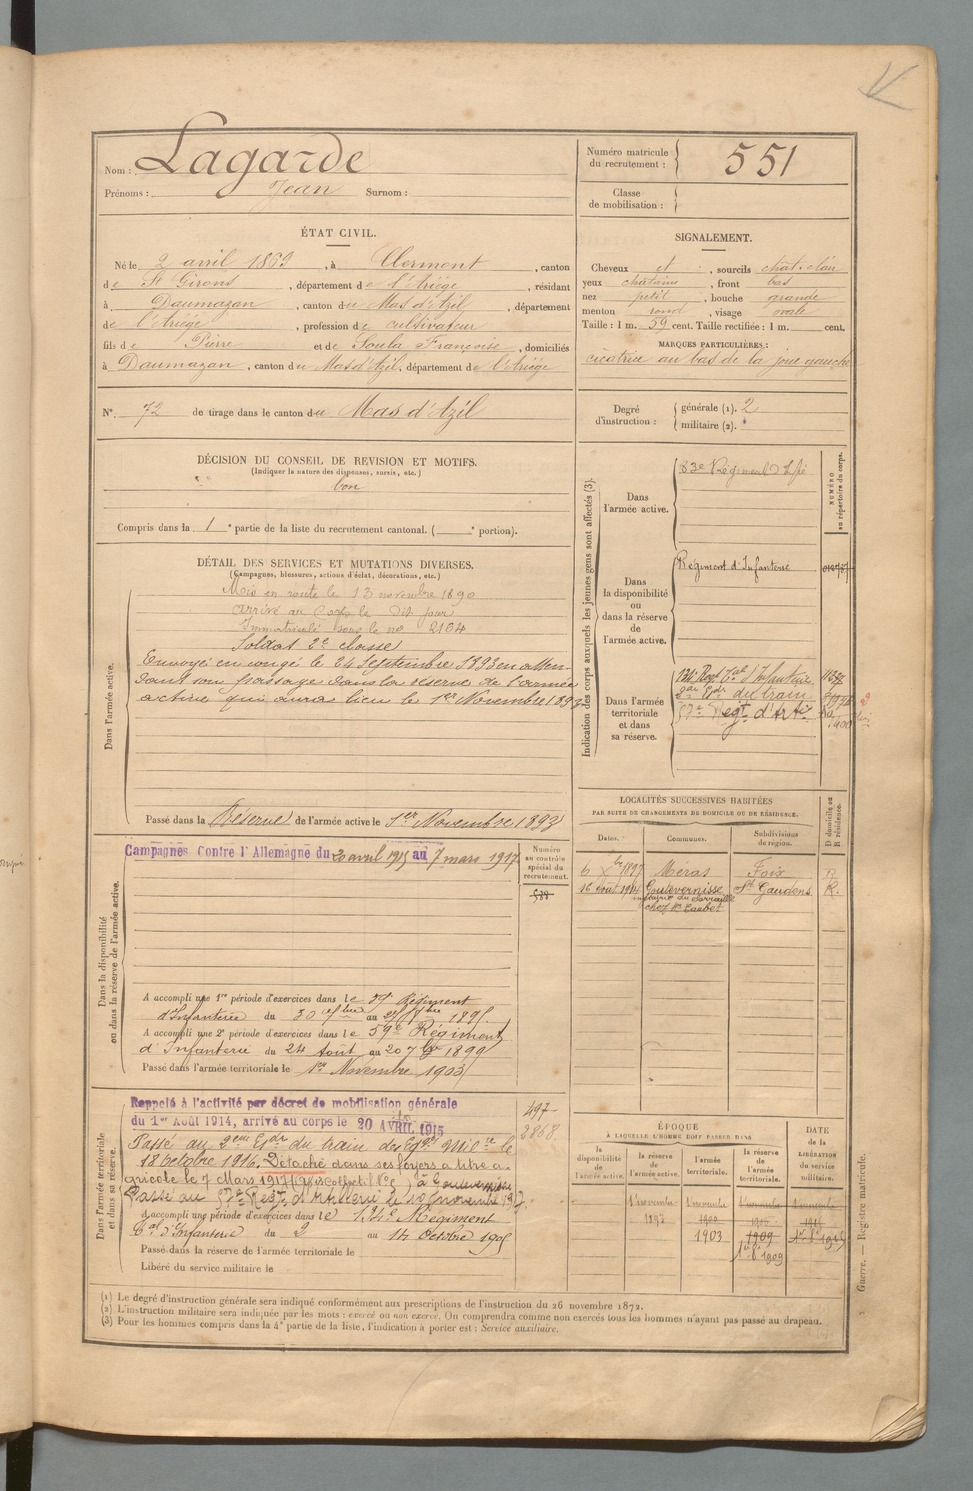 Nom : Lagarde
Prénoms : Jean Surnom :
Numéro matricule du recrutement : 551
Classe de mobilisation :
ÉTAT CIVIL.
Né le 2 avril 1869, à Clermont, canton
de St Girons, département de l'Ariège, résidant
à Daumazan, canton du Mas d'Azil, département
de l'Ariège, profession de cultivateur
fils de Pierre et de Soula Françoise, domiciliés
à Daumazan, canton du Mas d'Azil, département de l'Ariège
SIGNALEMENT.
Cheveux et, sourcils chat. clair
yeux chatains, front bas
nez petit, bouche grande
menton rond, visage ovale
Taille : 1 m. 59 cent. Taille rectifiée : 1 m. cent.
MARQUES PARTICULIÈRES :
cicatrice au bas de la joue gauche
N° 72 de tirage dans le canton du Mas d'Azil
Degré d'instruction : générale (1). 2
militaire (2).
DÉCISION DU CONSEIL DE REVISION ET MOTIFS.
(Indiquer la nature des dispenses, sursis, etc.)
bon
Compris dans la 1e partie de la liste du recrutement cantonal. ( e portion).
DÉTAIL DES SERVICES ET MUTATIONS DIVERSES.
(Campagnes, blessures, actions d'éclat, décorations, etc.)
Dans l'armée active.
Mis en route le 13 novembre 1890
arrivé au Corps le dit jour
Immatriculé sous le no 2104
Soldat 2e classe
Envoyé en congé le 24 Septembre 1893 en atten-
dant son passage dans la réserve de l'armée
active qui aura lieu le 1er Novembre 1893
Passé dans la Réserve de l'armée active le 1er Novembre 1893
Indication des corps auxquels les jeunes gens sont affectés (3).
NUMÉRO au répertoire du corps.
Dans l'armée active.
83e Régiment d'Inf
Dans la disponibilité ou dans la réserve de l'armée active.
Régiment d'Infanterie
Dans l'armée territoriale et dans sa réserve.
134 Regt Tal d'Infanterie
Edr du train
57e Regt d'Artie
LOCALITÉS SUCCESSIVES HABITÉES
PAR SUITE DE CHANGEMENTS DE DOMICILE OU DE RÉSIDENCE.
Dates. Communes. Subdivisions de région. D domicile ou R résidence.
6 Xbre 1897 Méras Foix R
16 Août 1914 Goutevernisse St Gaudens R.
Dans la disponibilité ou dans la réserve de l'armée active.
Campagnes Contre l'Allemagne du 20 avril 1915 au 7 mars 1917
Numéro au contrôle spécial du recrutement.
588
A accompli une 1re période d'exercices dans le 59e Régiment
d'Infanterie du 30 7bre au 1895.
A accompli une 2e période d'exercices dans le 59e Régiment
d'Infanterie du 24 Août au 20 7bre 1899
Passé dans l'armée territoriale le 1er Novembre 1903
Dans l'armée territoriale et dans sa réserve.
Rappelé à l'activité par décret de mobilisation générale
du 1er Août 1914, arrivé au corps le 20 AVRIL 1915
497
2868.
Passé au 2eme Esdr du train des Eqges Milre le
18 octobre 1916. Détaché dans ses foyers à titre a-
gricole le 7 Mars 1917 à Goutevernisse
Passé au 57e Regt d'Artillerie le 10 novembre 1917.
A accompli une période d'exercices dans le 134e Régiment
Tal d'Infanterie du 2 au 14 Octobre 1905
Passé dans la réserve de l'armée territoriale le
Libéré du service militaire le
ÉPOQUE
À LAQUELLE L'HOMME DOIT PASSER DANS
la disponibilité de l'armée active. la réserve de l'armée active. l'armée territoriale. la réserve de l'armée territoriale. DATE de la LIBÉRATION du service militaire.
1er novembre 1er novembre 1er novembre 1er novembre
1893 1900 1906 1915
1903 1909
1er 8bre 1909
(1) Le degré d'instruction générale sera indiqué conformément aux prescriptions de l'instruction du 26 novembre 1872.
(2) L'instruction militaire sera indiquée par les mots : exercé ou non exercé. On comprendra comme non exercés tous les hommes n'ayant pas passé au drapeau.
(3) Pour les hommes compris dans la 4e partie de la liste, l'indication à porter est : Service auxiliaire.
Guerre. — Registre matricule.